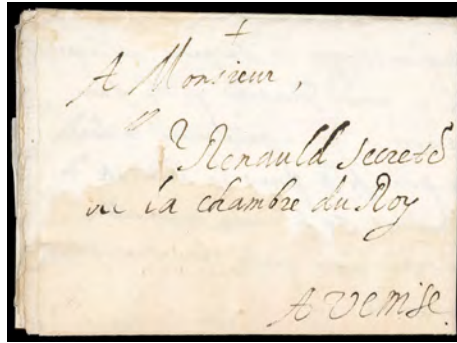 A Monsieur,
Renauld secret.e
de la chambre du Roy
A Venise.